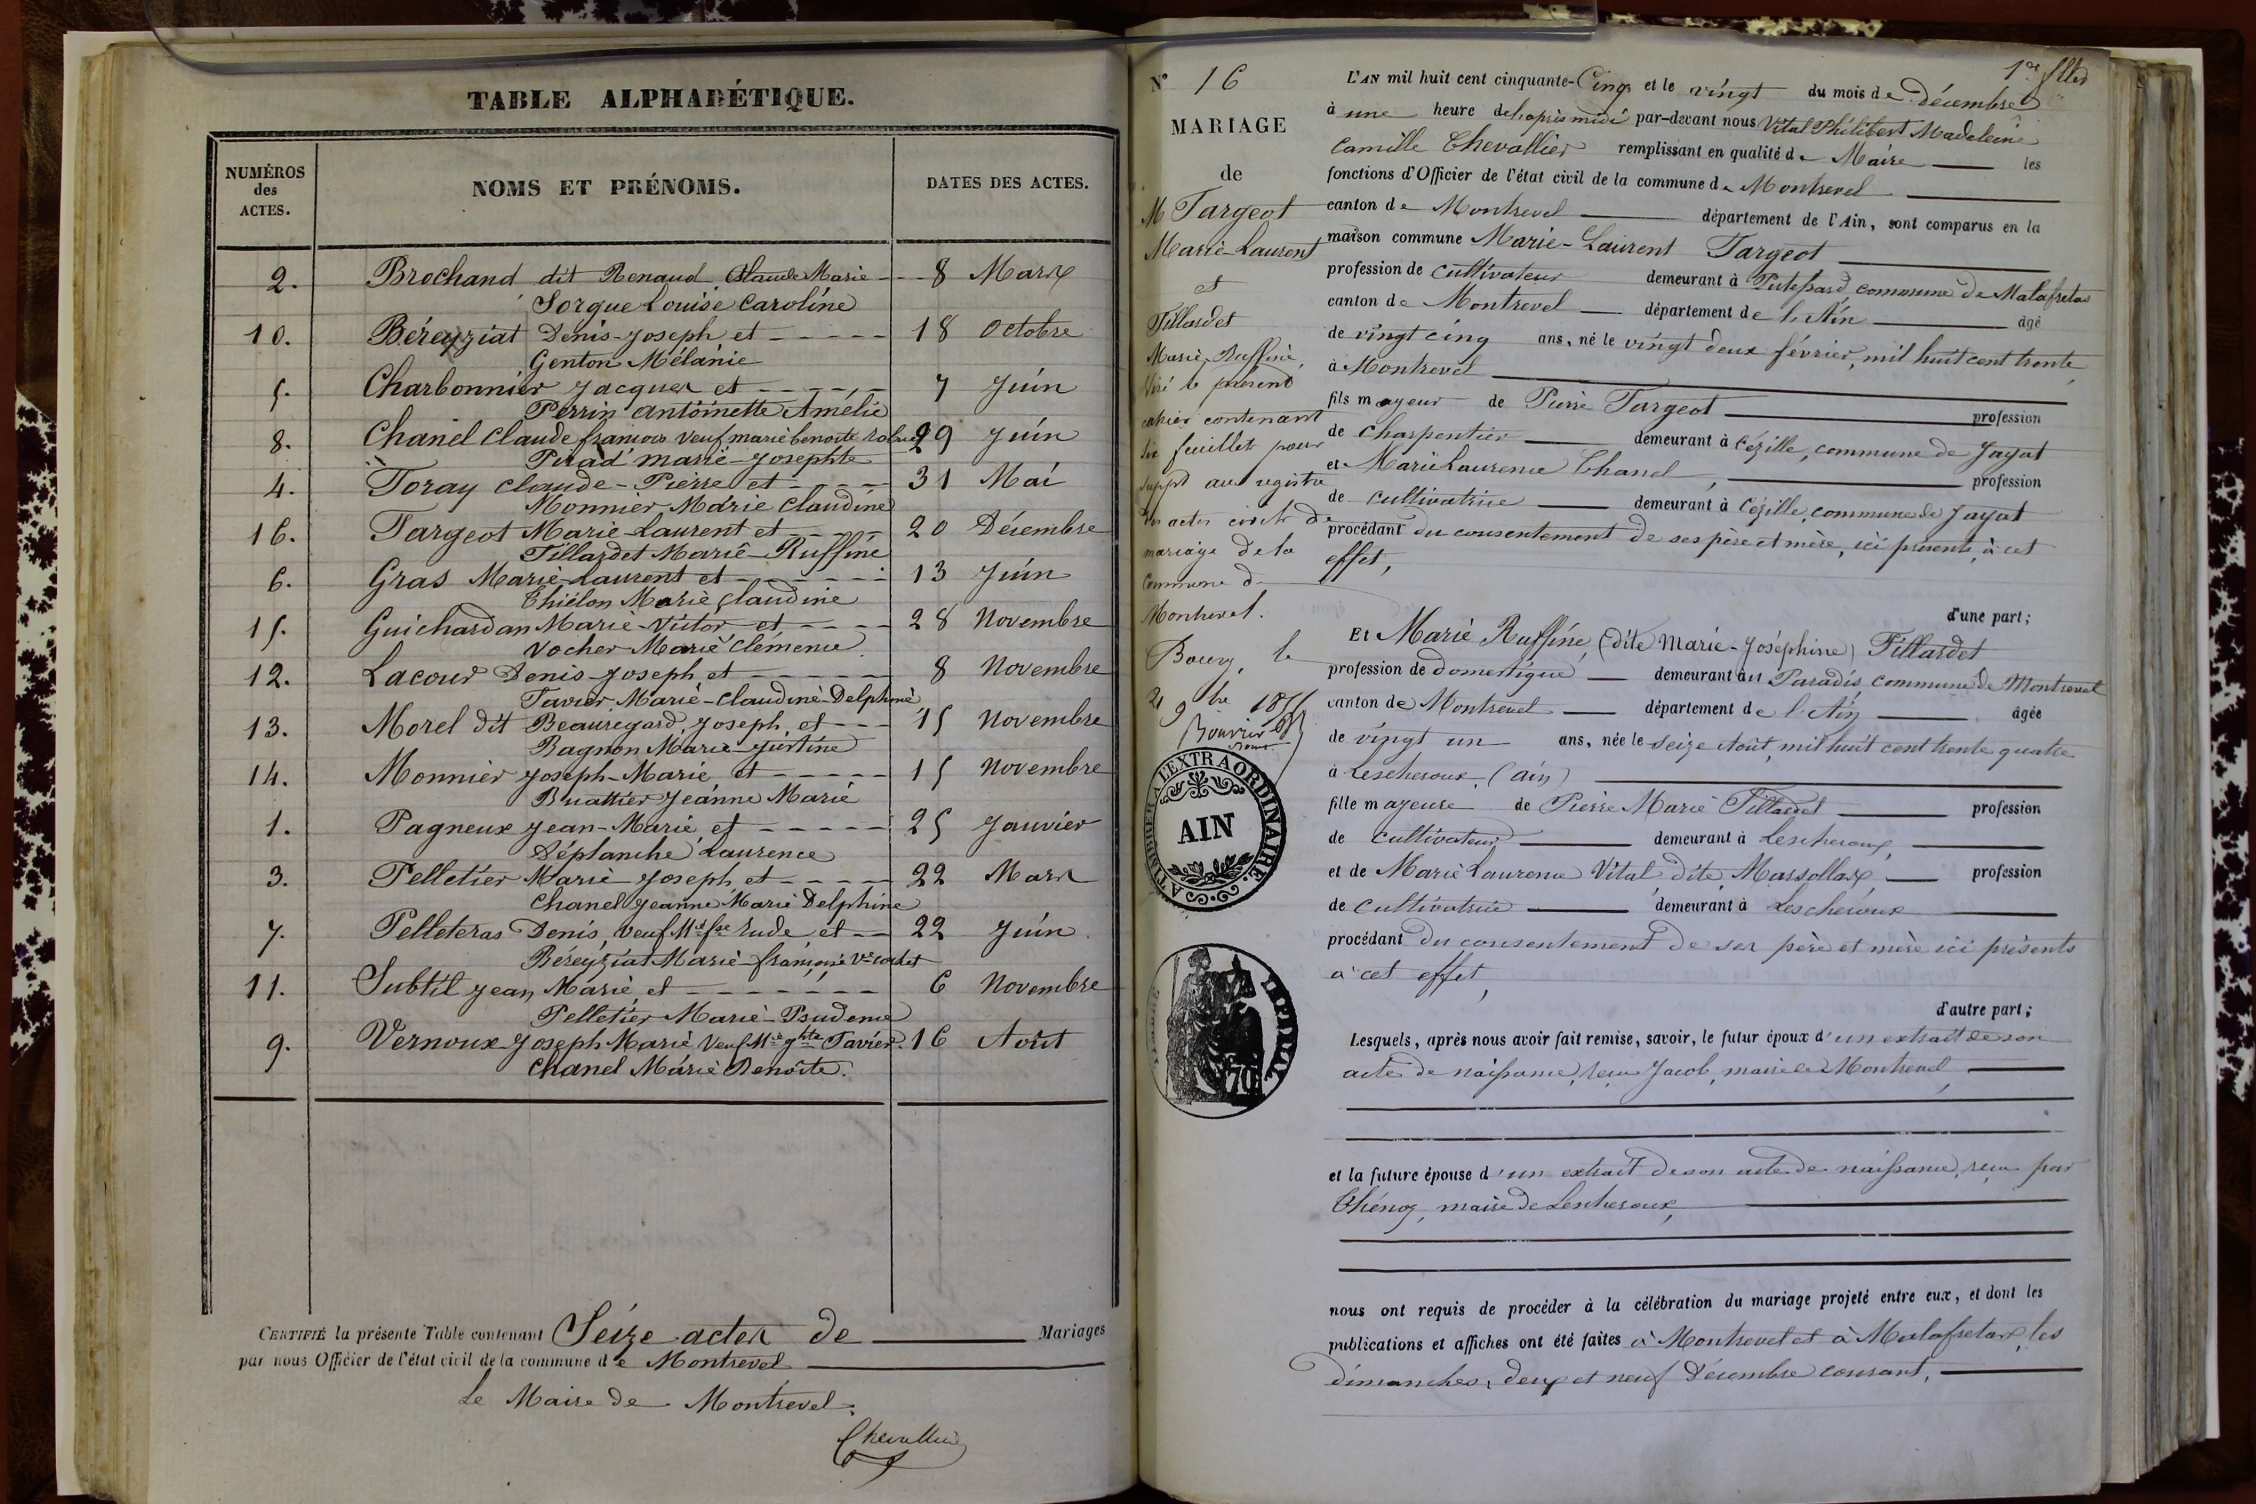 TABLE ALPHABÉTIQUE.
NUMÉROS des ACTES.
NOMS ET PRÉNOMS.
DATES DES ACTES.
2. Brochand dit Renaud, Claude Marie - - 8 Mars
Sorgue Louise Caroline
10. Béreyziat Denis-Joseph et - - - - - 18 Octobre
Genton Mélanie
5. Charbonnier Jacques et - - - - - 7 Juin
Perrin Antoinette Amélie
8. Chanel Claude françois veuf marie benoite 29 Juin
marie-Josephte
4. Foray Claude-Pierre et - - - - 31 Mai
Monnier Marie Claudine
16. Fargeot Marie-Laurent et - - - - 20 Décembre
Fillardet Marie-Ruffine
6. Gras Marie-Laurent et - - - - - - 13 Juin
Thiélon Marie Claudine
15. Guichardan Marie-Victor et - - - - 28 Novembre
Vocher Marie Clémence
12. Lacour Denis-Joseph et - - - - - - 8 Novembre
Favier Marie-Claudine-Delphine
13. Morel dit Beauregard, Joseph, et - - - 15 Novembre
Bagnon Marie-Justine
14. Monnier Joseph-Marie et - - - - - 15 Novembre
Buattier Jeanne Marie
1. Pagneux Jean-Marie, et - - - - - 25 Janvier
Déplanche Laurence
3. Pelletier Marie Joseph et - - - - - 22 Mars
Chanel Jeanne Marie Delphine
7. Pelleteras Denis, veuf Mie fse Rude, et - - 22 Juin
Béreyziat Marie-françoise Ve
11. Subtil Jean Marie, et - - - - - - - 6 Novembre
Pelletier Marie-Prudence
9. Vernoux Joseph Marie Veuf Mie Jhte Favier. 16 Août
Chanel Marie Benoite.
CERTIFIÉ la présente Table contenant Seize actes de Mariages
par nous Officier de l'état civil de la commune de Montrevel
Le Maire de Montrevel.
Chevallier
1er fllet
N° 16
MARIAGE
de
M Fargeot
Marie-Laurent
et
Fillardet
Marie-Ruffine
Visé le présent
cahier contenant
six feuillet pour
suppt au registre
des actes civils de
mariage de la
Commune de
Montrevel.
Bourg, le
21 9bre 1855
Bouvier
A TIMBRER A L'EXTRAORDINAIRE.
AIN
TIMBRE IMPÉRIAL
70
L'AN mil huit cent cinquante-Cinq et le vingt du mois de décembre
à une heure de l'après midi par-devant nous Vital Philibert Madeleine
Camille Chevallier remplissant en qualité de Maire les
fonctions d'Officier de l'état civil de la commune de Montrevel
canton de Montrevel département de l'Ain, sont comparus en la
maison commune Marie-Laurent Fargeot
profession de cultivateur demeurant à commune de Malafretaz
canton de Montrevel département de l'Ain âgé
de vingt cinq ans, né le vingt deux février, mil huit cent trente
à Montrevel
fils mayeur de Pierre Fargeot profession
de charpentier demeurant à Cézille, commune de Jayat
et Marie Laurence Chanel, profession
de cultivatrice demeurant à Cézille, commune de Jayat
procédant du consentement de ses père et mère, ici présents, à cet
effet,
d'une part;
Et Marie Ruffine, (dite Marie-Joséphine) Fillardet
profession de domestique demeurant au Paradis, commune de Montrevel
canton de Montrevel département de l'Ain âgée
de vingt un ans, née le seize Août, mil huit cent trente quatre
à Lescheroux, (ain)
fille mayeure de Pierre Marie Fillardet profession
de cultivateur demeurant à Lescheroux,
et de Marie Laurence Vital, dite Massollax, profession
de cultivatrice demeurant à Lescheroux
procédant du consentement de ses père et mère ici présents
à cet effet,
d'autre part;
Lesquels, après nous avoir fait remise, savoir, le futur époux d'un extrait de son
acte de naissance, reçu Jacob, maire de Montrevel,
et la future épouse d'un extrait de son acte de naissance, reçu par
Chénoz, maire de Lescheroux,
nous ont requis de procéder à la célébration du mariage projeté entre eux, et dont les
publications et affiches ont été faites à Montrevel et à Malafretaz, les
dimanches, deux et neuf Décembre courant,